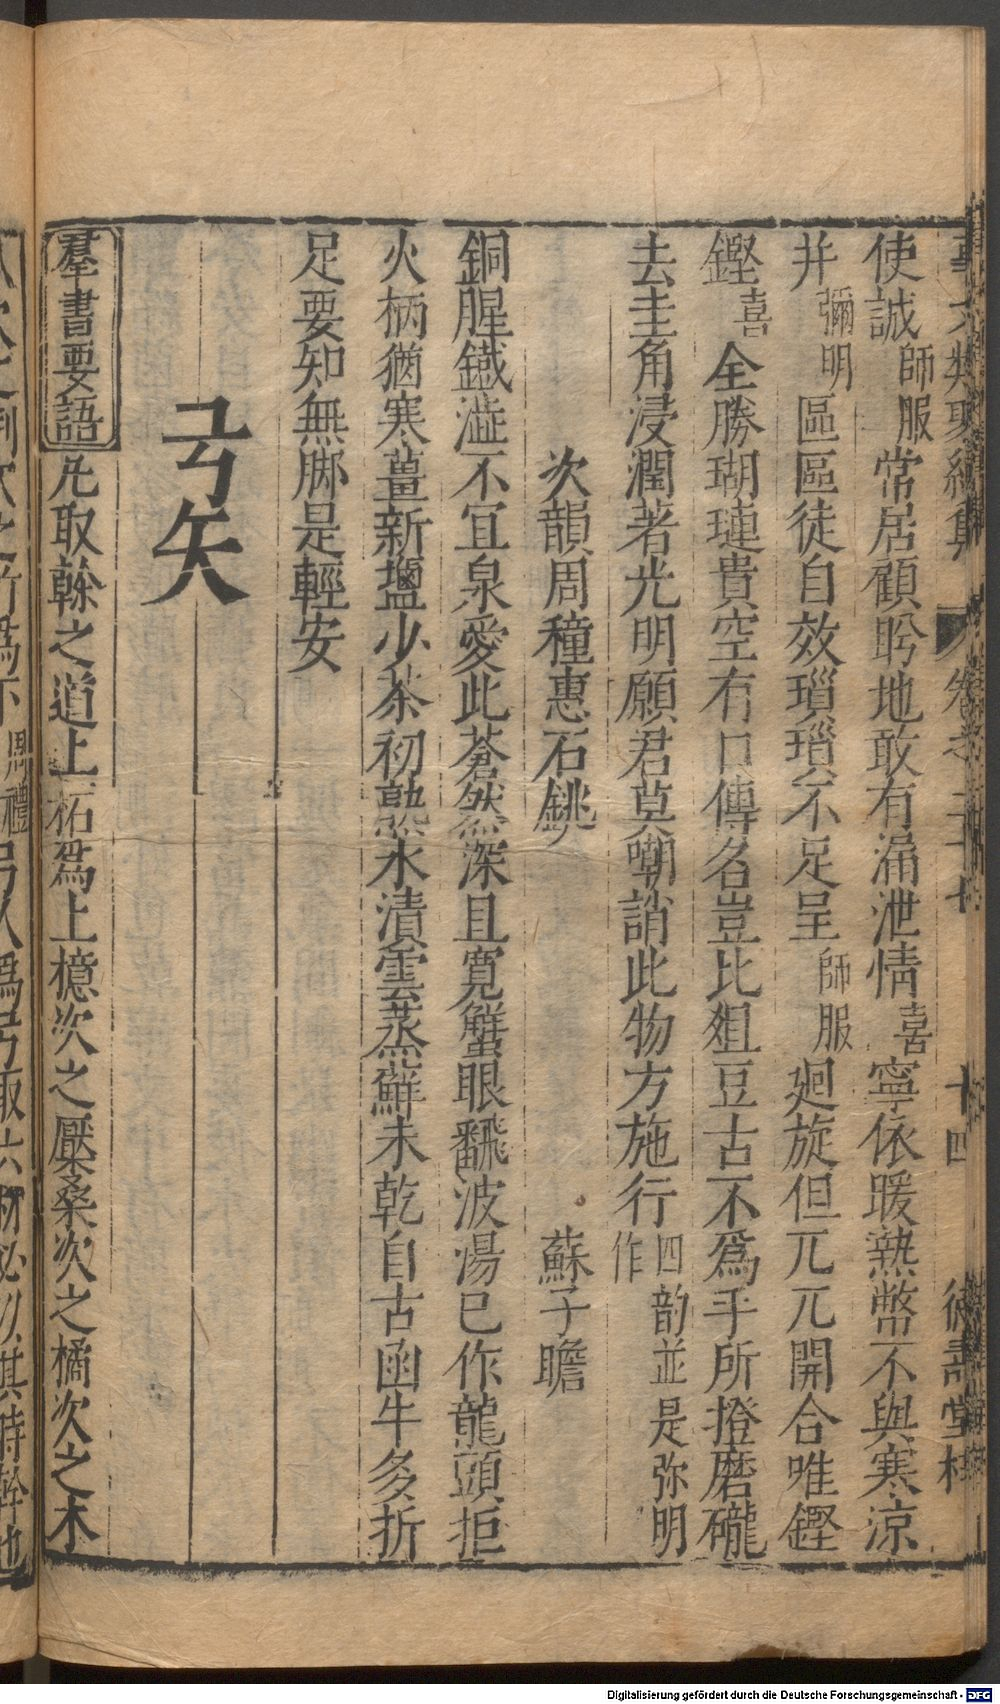 事文類聚續集 卷之二十七 十四 德壽堂梓
使誠師服常居顧眄地敢有漏泄情喜寧依暖熱幣不與寒涼
并彌明區區徒自效瑣瑣不足呈師服廻旋但兀兀開合唯鏗
鏗喜全勝瑚璉貴空有口傳名豈比爼豆古不爲手所撜磨礲
去圭角浸潤著光明願君莫嘲誚此物方施行四韵並是弥明作
次韻周穜惠石銚 蘇子瞻
銅腥鐵澁不宜泉愛此蒼然深且寬蟹眼飜波湯已作龍頭拒
火柄猶寒薑新鹽少茶初熟水漬雲蒸蘚未乾自古函牛多折
足要知無脚是輕安
弓矢
羣書要語凡取榦之道上柘爲上檍次之檿桑次之橘次之木
瓜次之荊次之竹爲下周禮弓人爲弓取六材必以其時榦也
Digitalisierung gefördert durch die Deutsche Forschungsgemeinschaft - DFG